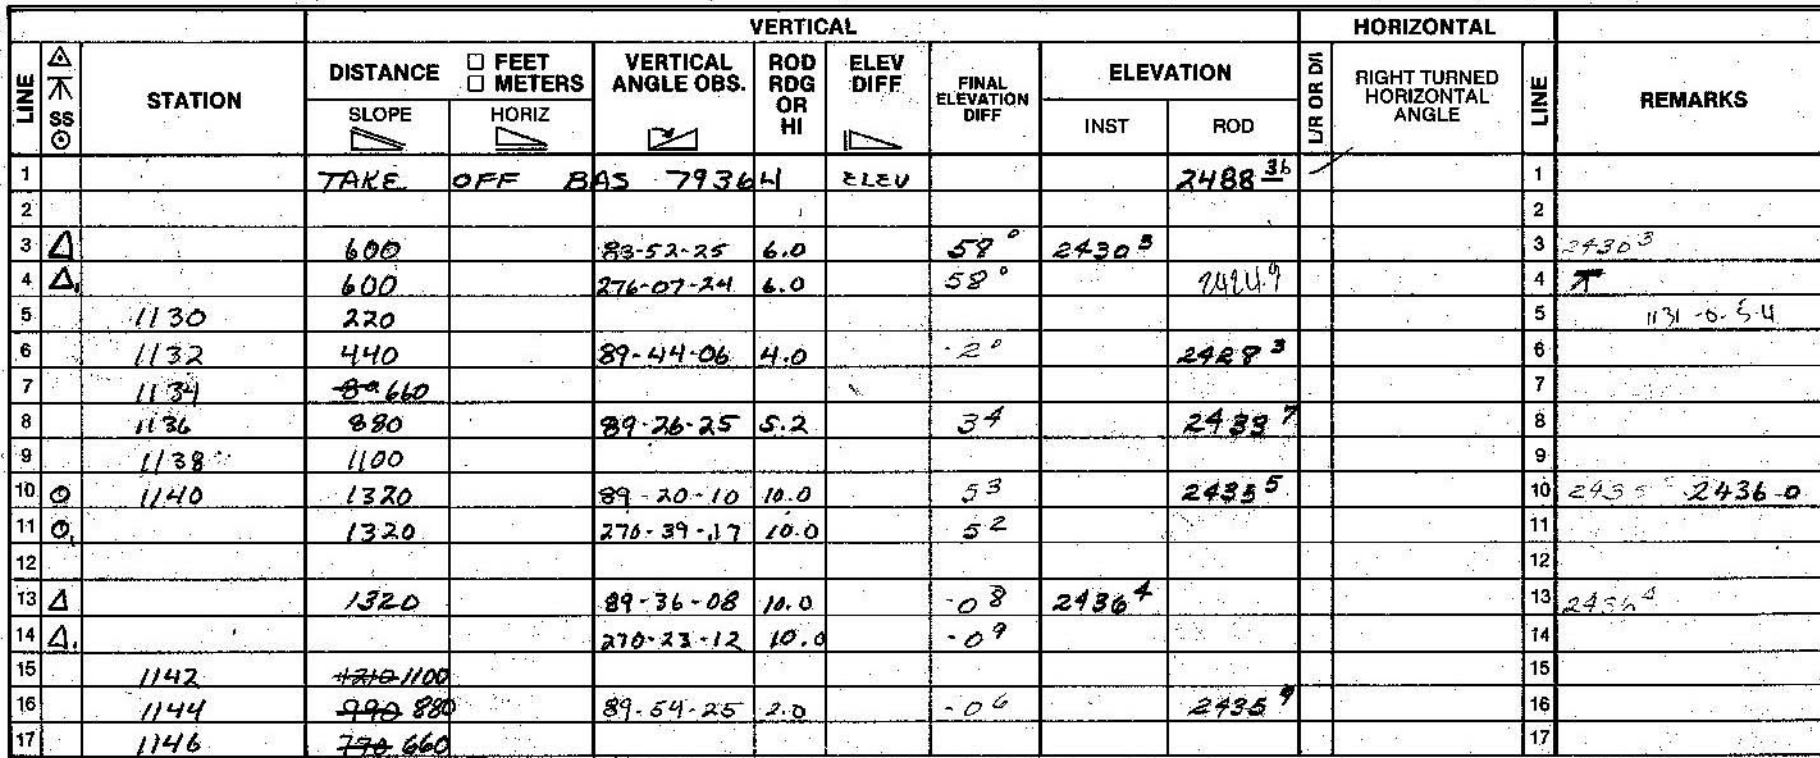 VERTICAL HORIZONTAL
LINE SS STATION DISTANCE □ FEET □ METERS SLOPE HORIZ VERTICAL ANGLE OBS. ROD RDG OR HI ELEV DIFF FINAL ELEVATION DIFF ELEVATION INST ROD L/R OR D/I RIGHT TURNED HORIZONTAL ANGLE LINE REMARKS
1 TAKE OFF BAS 79364 ELEV 2488 36 1
2 2
3 △ 600 83-52-25 6.0 58 0 2430 3 3 2430 3
4 △1 600 276-07-24 6.0 58 0 2424.9 4
5 1130 220 5 1131 -0- 5.4
6 1132 440 89-44-06 4.0 -2 0 2428 3 6
7 1134 660 7
8 1136 880 89-26-25 5.2 3 4 2433 7 8
9 1138 1100 9
10 ⊙ 1140 1320 89-20-10 10.0 5 3 2435 5 10 2435 5 2436-0
11 ⊙1 1320 270-39-17 10.0 5 2 11
12 12
13 △ 1320 89-36-08 10.0 -0 8 2436 4 13 2436 4
14 △1 270-23-12 10.0 -0 9 14
15 1142 1210 1100 15
16 1144 990 880 89-54-25 2.0 -0 6 2435 9 16
17 1146 770 660 17